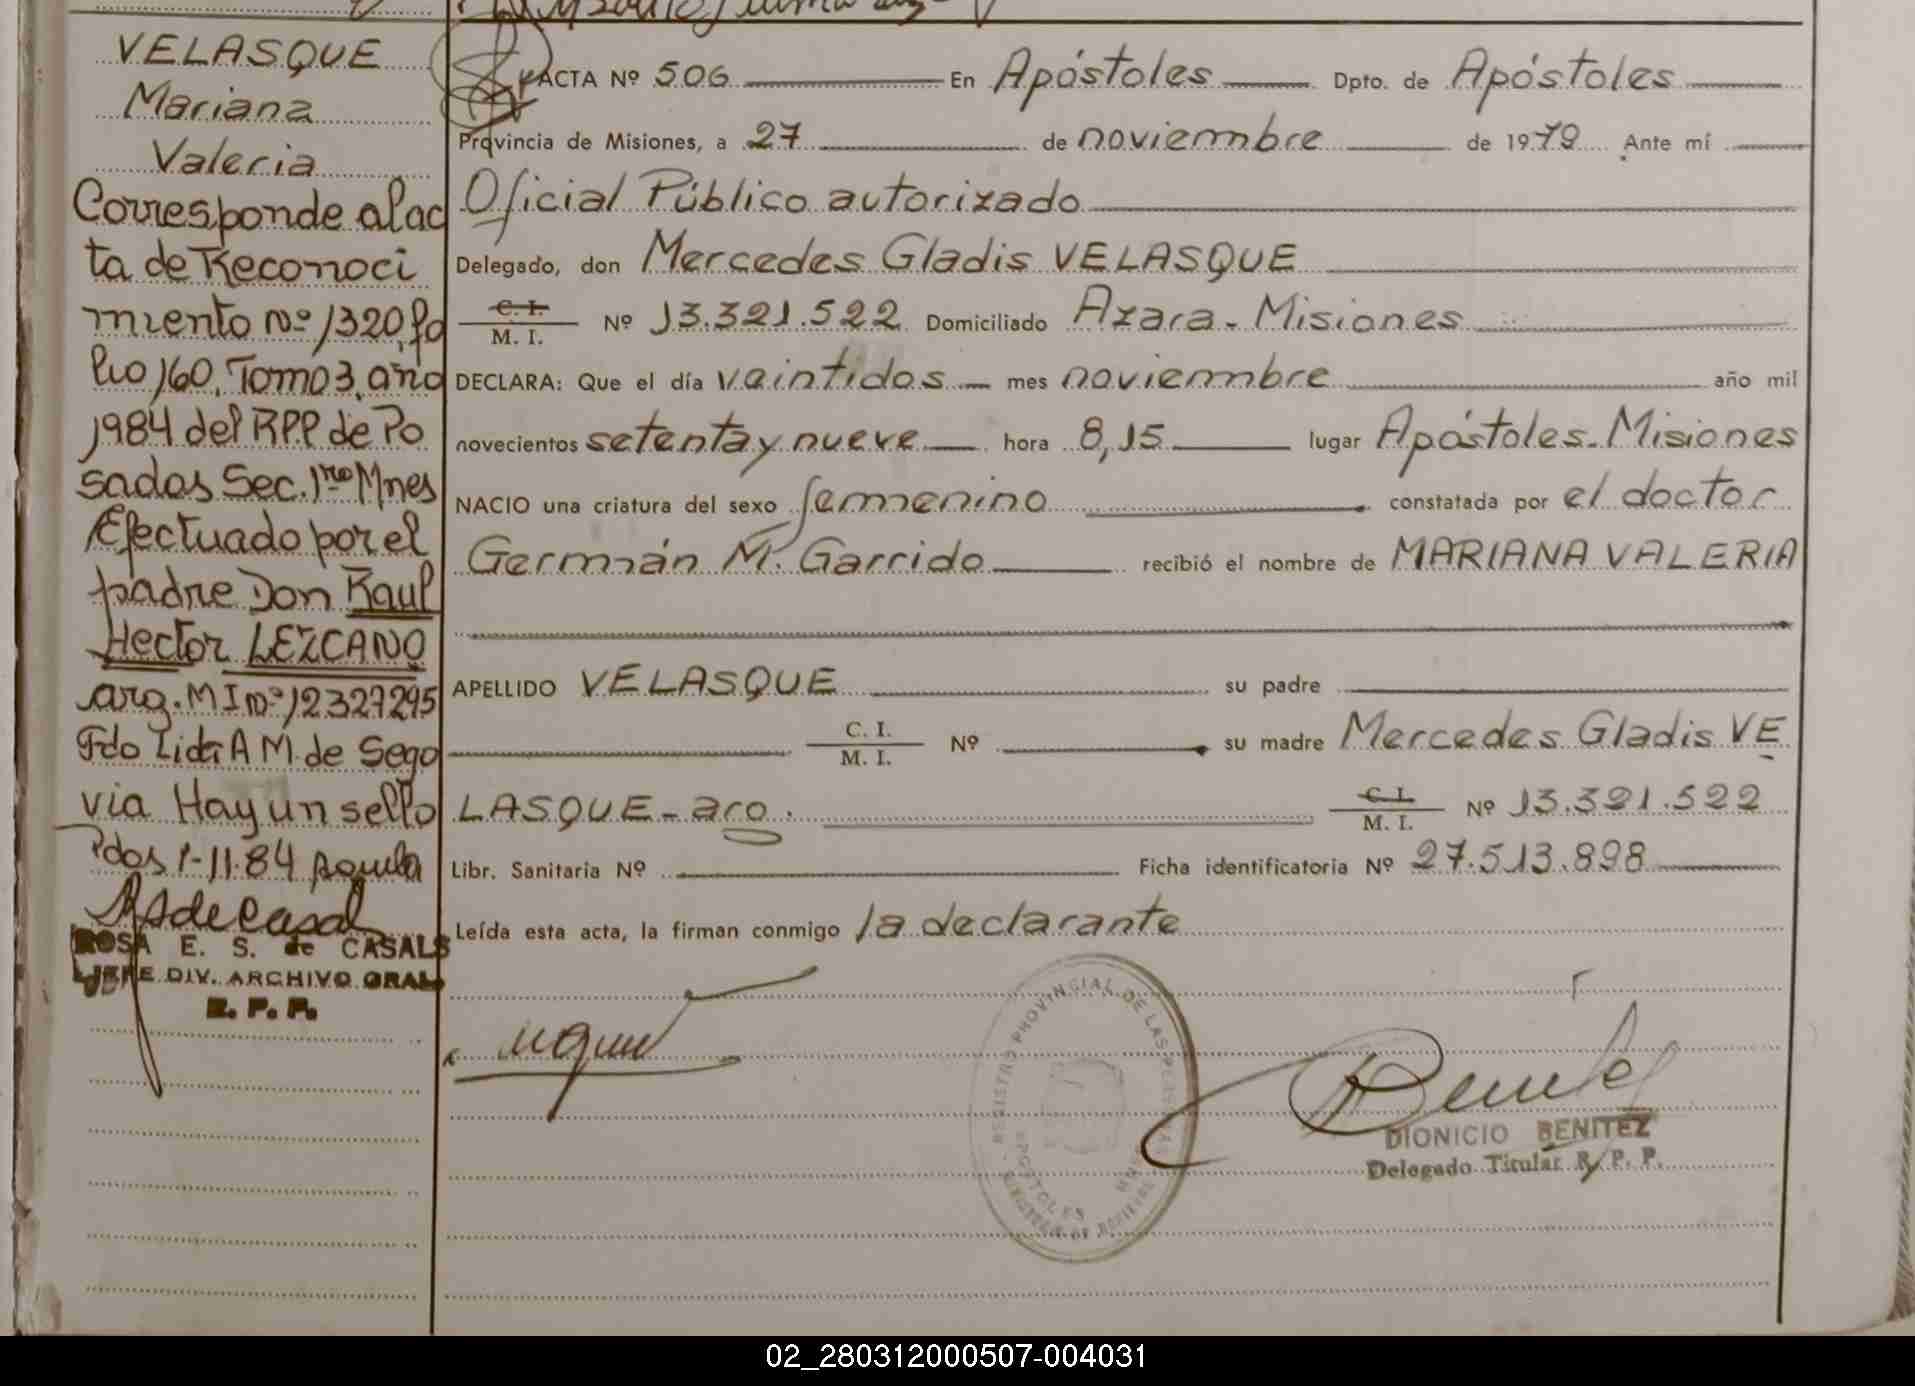 VELASQUE
Mariana
Valeria
Corresponde al ac
ta de Reconoci
miento Nº 1320, fo
lio 160, Tomo 3, año
1984 del RPP de Po
sadas Sec. 1ra Mnes
Efectuado por el
padre Don Raul
Hector LEZCANO
arg. M I nº 12327295
Fdo Lida A M. de Sego
via Hay un sello
Pdas 1-11-84
ROSA E. S. de CASALS
JEFE DIV. ARCHIVO GRAL
R. P. P.
ACTA Nº 506 En Apóstoles Dpto. de Apóstoles
Provincia de Misiones, a 27 de noviembre de 1979 Ante mí
Oficial Público autorizado
Delegado, don Mercedes Gladis VELASQUE
C. I.
M. I. Nº 13.321.522 Domiciliado Azara - Misiones
DECLARA: Que el día veintidos mes noviembre año mil
novecientos setenta y nueve hora 8,15 lugar Apóstoles - Misiones
NACIO una criatura del sexo femenino constatada por el doctor
Germán M. Garrido recibió el nombre de MARIANA VALERIA
APELLIDO VELASQUE su padre
C. I.
M. I. Nº su madre Mercedes Gladis VE
LASQUE - arg. C. I.
M. I. Nº 13.321.522
Libr. Sanitaria Nº Ficha identificatoria Nº 27.513.898
Leída esta acta, la firman conmigo la declarante
REGISTRO PROVINCIAL DE LAS PERSONAS
APOSTOLES MNES
DIONICIO BENITEZ
Delegado Titular R. P. P.
02_280312000507-004031